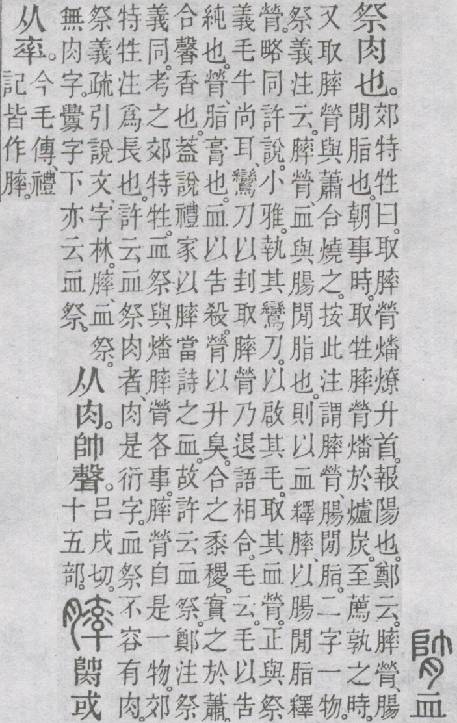 血
祭肉也。
郊特牲曰。取膟膋燔燎升首。報陽也。鄭云。膟膋、腸
閒脂也。朝事時。取牲膟膋燔於爐炭。至薦孰之時。
又取膟膋與蕭合燒之。按此注謂膟膋、腸閒脂。二字一物。
祭義注云。膟膋、血與腸閒脂也。則以血釋膟、以腸閒脂釋
膋。略同許說。小雅。執其鸞刀。以啟其毛。取其血膋。正與祭
義毛牛尚耳、鸞刀以刲取膟膋乃退語相合。毛云。毛以告
純也。膋、脂膏也。血以告殺。膋以升臭。合之黍稷。實之於蕭
合馨香也。蓋說禮家以膟當詩之血。故許云血祭。鄭注祭
義同。考之郊特牲。血祭與燔膟膋各事。膟膋自是一物。郊
特牲注爲長也。許云血祭肉者、肉是衍字。血祭不容有肉。
祭義疏引說文、字林。膟、血祭。
無肉字。釁字下亦云血祭。
从肉。帥聲。呂戌切。十五部。膟或
从率。
今毛傳禮
記皆作膟。